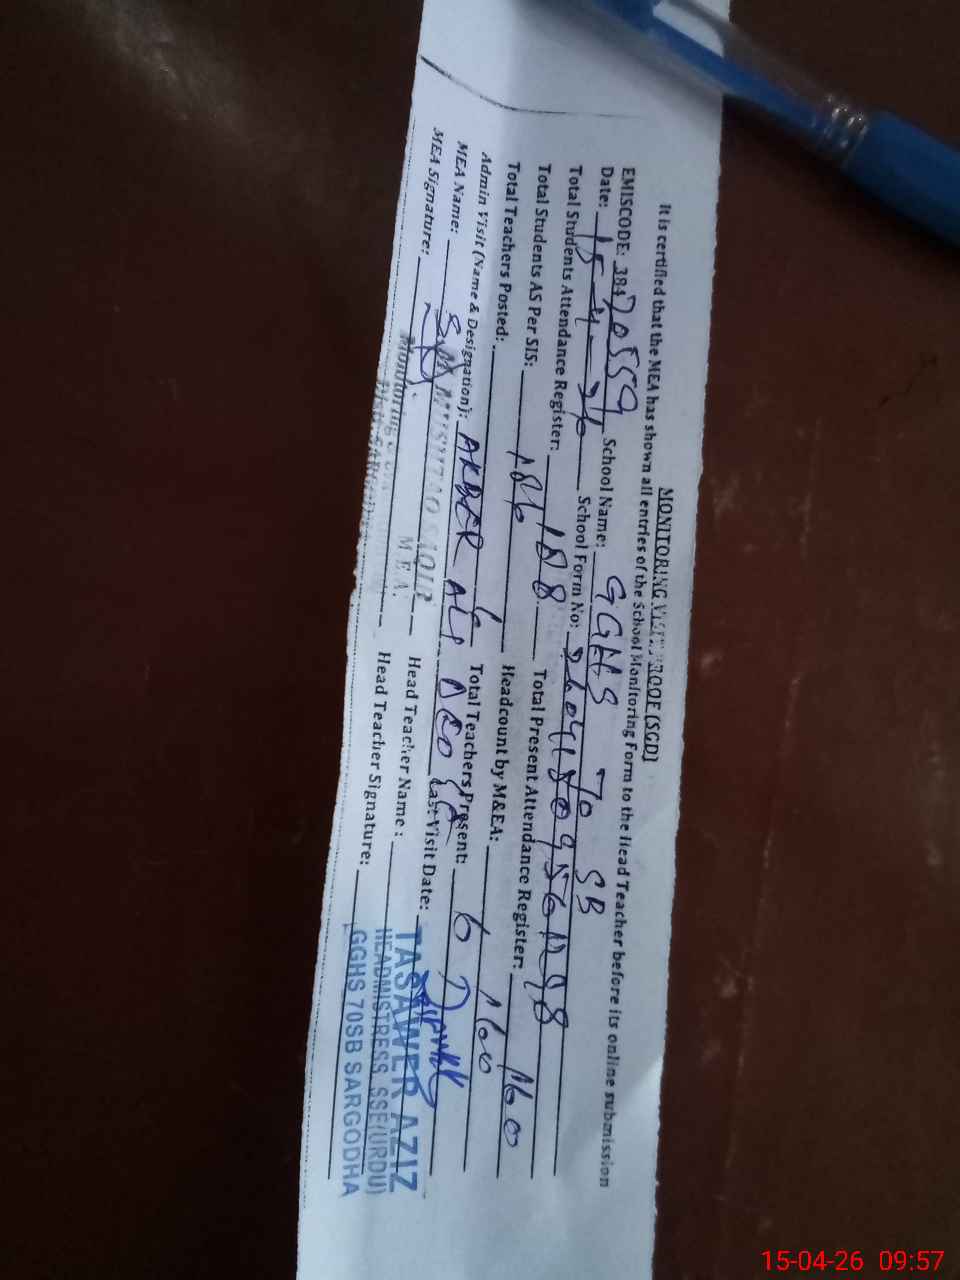 MONITORING VISIT PROOF [SGD]
It is certified that the MEA has shown all entries of the School Monitoring Form to the Head Teacher before its online submission
EMISCODE: 38470559 School Name: GGHS 70 SB
Date: 15-4-26 School Form No:
Total Students Attendance Register: 188 Total Present Attendance Register: 160
Total Students AS Per SIS: 186 Headcount by M&EA: 160
Total Teachers Posted: 6 Total Teachers Present: 6
Admin Visit (Name & Designation): AKBER ALI Last Visit Date:
MEA Name: Head Teacher Name :
MEA Signature: Head Teacher Signature:
M.E.A.
TASAWER AZIZ
HEADMISTRESS SSE(URDU)
GGHS 70SB SARGODHA
15-04-26 09:57